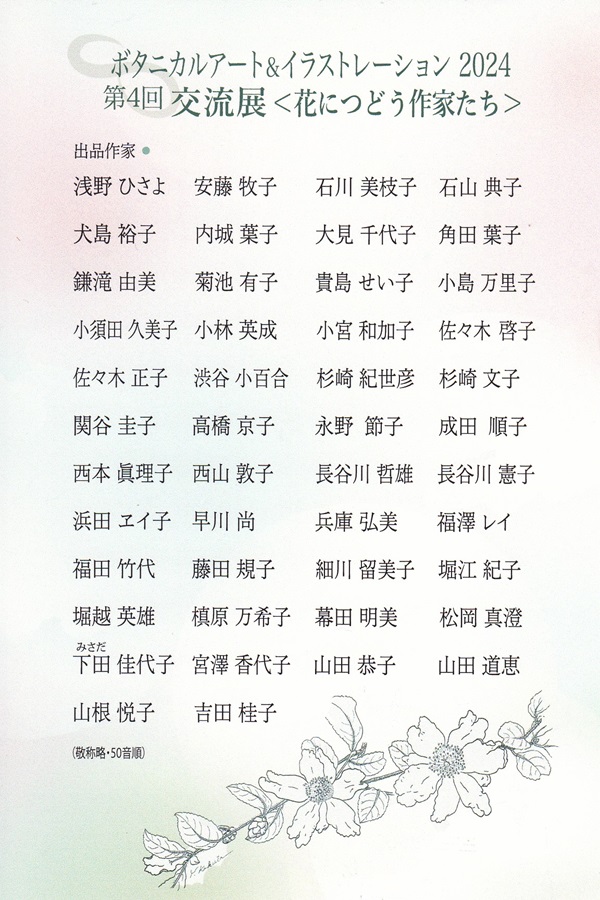 ボタニカルアート&イラストレーション 2024
第4回 交流展 <花につどう作家たち>
出品作家 ●
浅野 ひさよ 安藤 牧子 石川 美枝子 石山 典子
犬島 裕子 内城 葉子 大見 千代子 角田 葉子
鎌滝 由美 菊池 有子 貴島 せい子 小島 万里子
小須田 久美子 小林 英成 小宮 和加子 佐々木 啓子
佐々木 正子 渋谷 小百合 杉崎 紀世彦 杉崎 文子
関谷 圭子 高橋 京子 永野 節子 成田 順子
西本 眞理子 西山 敦子 長谷川 哲雄 長谷川 憲子
浜田 ヱイ子 早川 尚 兵庫 弘美 福澤 レイ
福田 竹代 藤田 規子 細川 留美子 堀江 紀子
堀越 英雄 槙原 万希子 幕田 明美 松岡 真澄
みさだ
下田 佳代子 宮澤 香代子 山田 恭子 山田 道恵
山根 悦子 吉田 桂子
(敬称略・50音順)